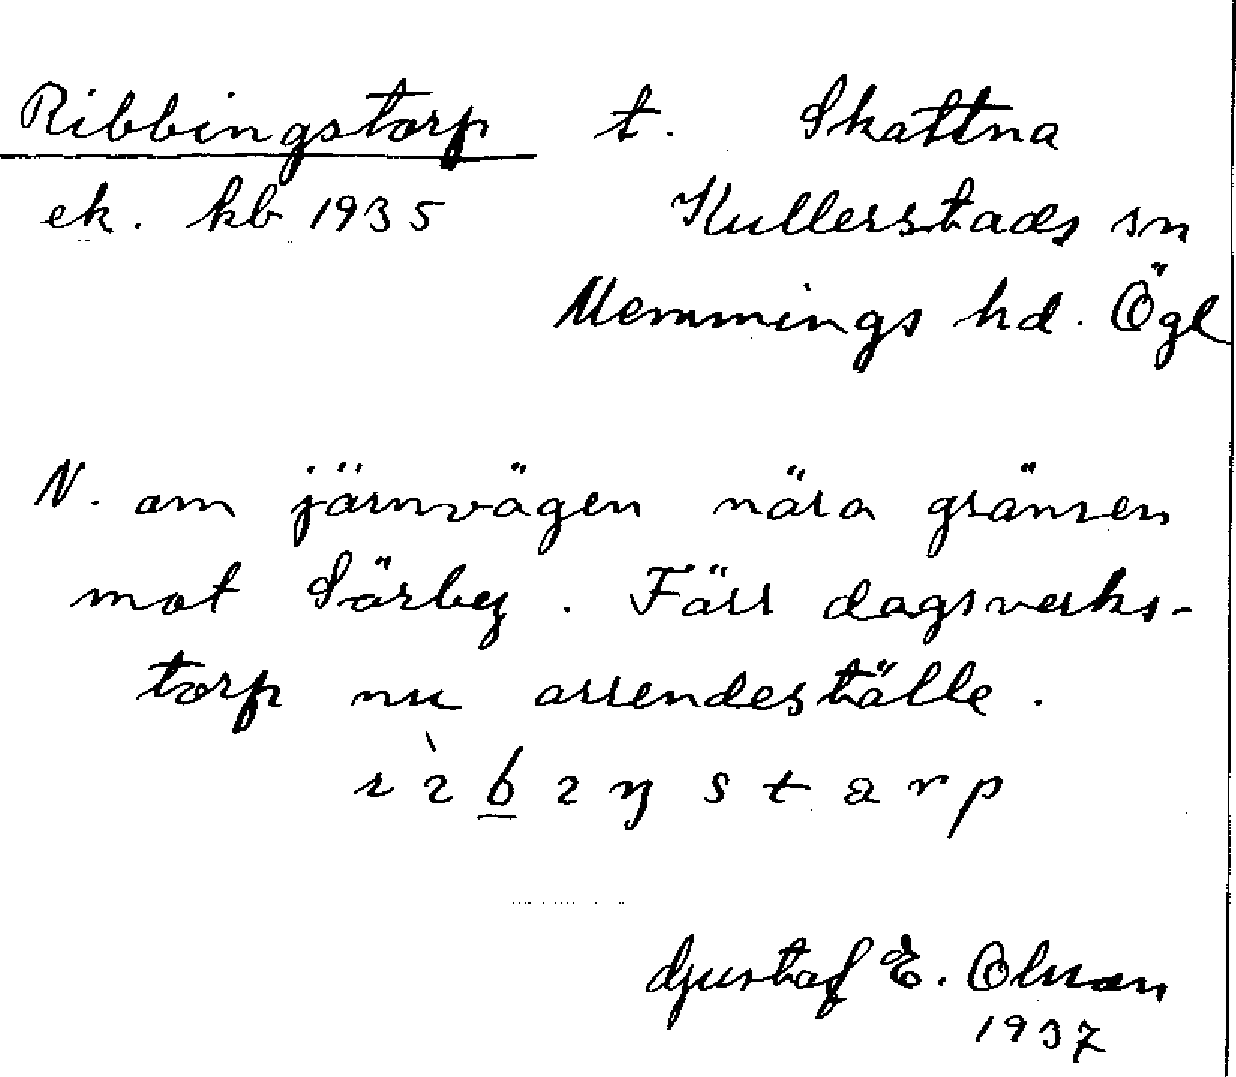 Ribbingstorp t. Skattna
ek. kb 1935 Kullerstads sn
Memmings hd. Ögl
N. om järnvägen nära gränsen
mot Särby. Förr dagsverks-
torp nu arrendeställe.
Gustaf E. Olsson
1937